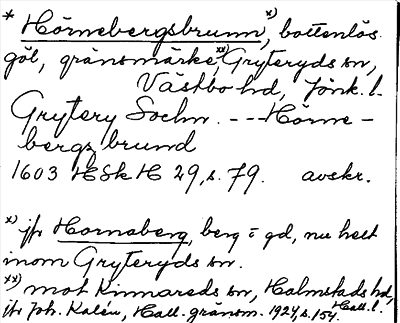 * Hörnebergsbrunn, x) bottenlös
göl, gränsmärke, xx) Gryteryds sn,
Västbo hd, Jönk. l.
Grytery Sochn. --- Hörne-
bergz brund
1603 HSkH 29, s. 79. avskr.
x) jfr Hornaberg, berg i gd, nu helt
inom Gryteryds sn.
xx) mot Kinnareds sn, Halmstads hd, Hall. l.
jfr Joh. Kalén, Hall. gränsm. 1924, s. 154.